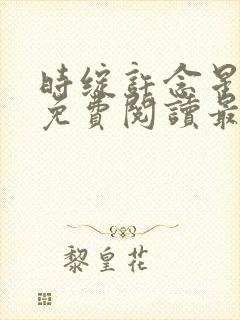 時綻許念星
免費閱讀最
黎皇花